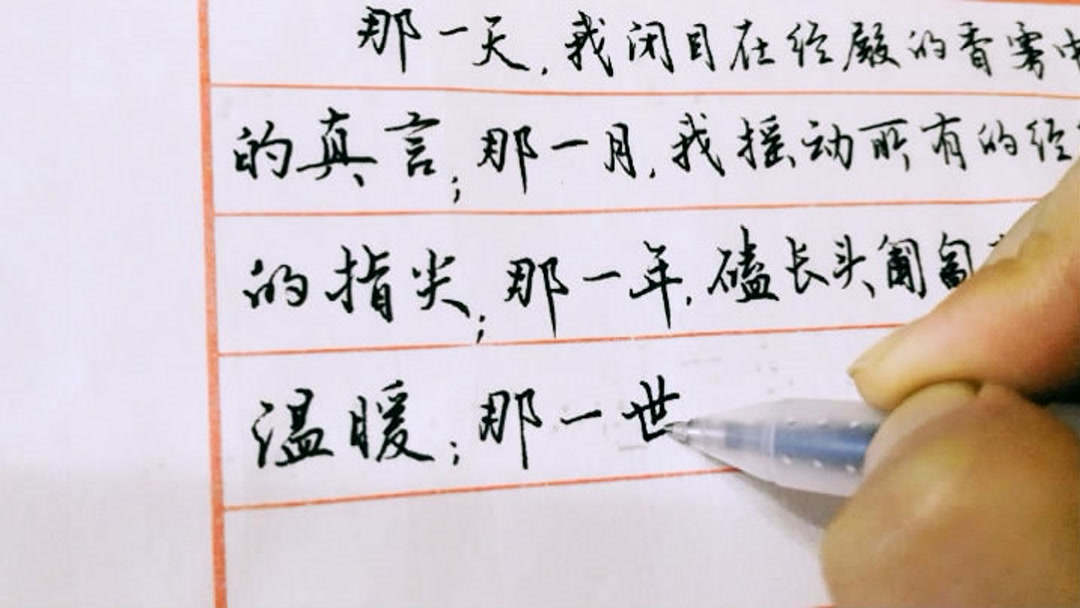 那一天,我闭目在经殿的香雾中
的真言;那一月,我摇动所有的经
的指尖;那一年,磕长头匍匐
温暖;那一世